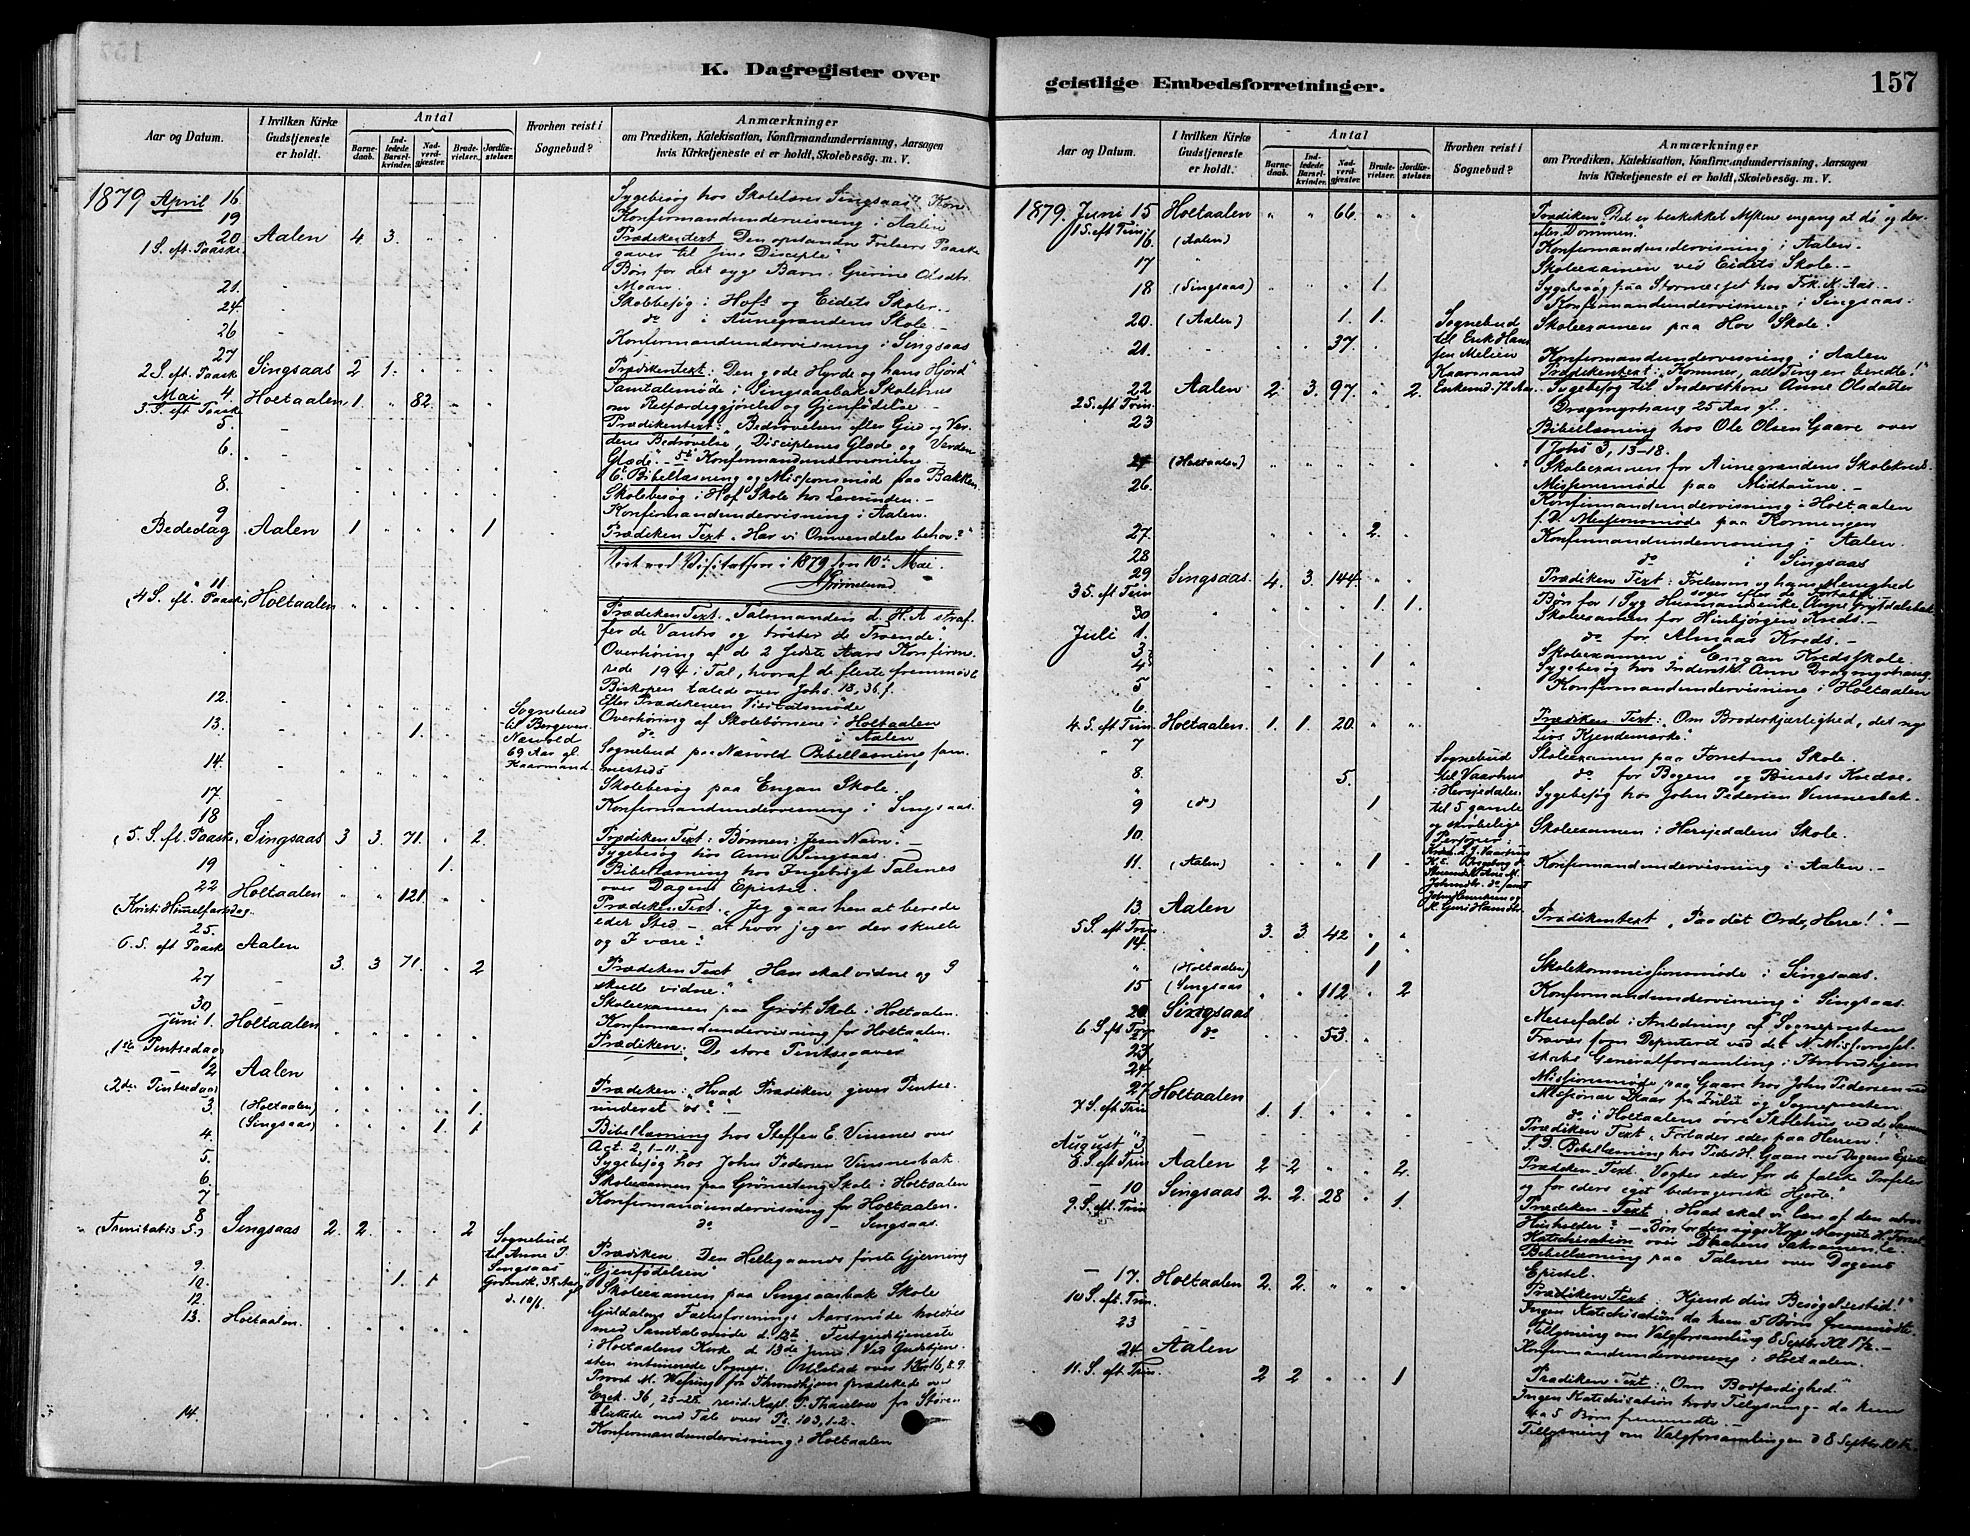 K. Dagregister over
geistlige Embedsforretninger.
157
Aar og Datum.
I hvilken Kirke Gudstjeneste er holdt.
Antal
Barnedaab.
Indledede Barselkvinder.
Nadverdgjæster.
Brudevielser.
Jordfæstelser.
Hvorhen reist i Sognebud?
Anmærkninger
om Prædiken, Katekisation, Konfirmandundervisning, Aarsagen
hvis Kirketjeneste ei er holdt, Skolebesøg. m. V.
1879 April 16 Sygebesøg hos Skolelærer Singsaas.
19 Konfirmandundervisning i Aalen
20 Aalen 4. 3. Prædikentext Den opstandne Frelsers Paaske
1 S. eft. Paaske gaver til sine Disciple
Bøn for det syge Barn: Gurine Olsdtr.
Moan.
21. Skolebesøg i Hofs og Eidets Skoler.
24. do i Aunegrandens Skole
26 Konfirmandundervisning i Singsaas
27 Singsaas 2 1. Prædikentext: Den gode Hyrde og hans Hjord
2 S. eft. Paask Samtalemøde i Singsaasbak Skolehus
Mai 4. Holtaalen 1. 82. om Retfærdiggjørelse og Gjenfødelse
3. S. eft Paask Prædikentext: Bedrøvelsen efter Gud og Ver-
5. dens Bedrøvelse, Disciplenes Glæde og Verdens
6. Glæde". 5te Konfirmandundervisning
6. Bibellæsning og Missionsmød paa Bakken
8. Skolebesøg i Hof Skole hos
9 Konfirmandundervisning i Aalen.
Bededag Aalen 1 1 Prædiken Text "Har vi Omvendelse behov?"
Vist ved Visitatsen i 1879 den 10de Mai.
Grimelund
11.
(4 S. eft. Paaske, Holtaalen Prædiken Text. Talsmanden d. H. A straf-
fer de Vantro og trøster de Troende".
Overhøring af de 2 sidste Aars Konfirme-
rede 194 i Tal, hvoraf de fleste fremmødt
Biskopen talede over Johs. 18, 36 f.
12. Efter Prædikenen
13. 1. Sognebud til Borgeven Næsvold 69 Aar gl. Kaarmand Overhøring af Skolebørnene i Holtaalen
do i Aalen
14. Sognebud paa Næsvold Bibellæsning sam-
mesteds
17. Skolebesøg paa Engan Skole.
18 Konfirmandundervisning i Singsaas.
(5. S. eft. Paaske, Singsaas 3 3. 71. 2. Prædiken Text: Bønnen i Jesu Navn.
19 1. Sygebesøg hos Anne Singsaas.
22 Holtaalen 121. Bibellæsning hos Ingebrigt Talsnes
over Dagens Epistel.
(Kristi Himmelfartsdag. Prædiken Text. "Jeg gaar hen at berede
25. eder Sted — at hvor jeg er der skulle
6. S. eft Paask Aalen og I være".
3. 3 71. 2 Prædiken Text "Han skal vidne og I
27 skulle vidne."
30 Skoleexamen paa Grøt. Skole i Holtaalen.
Juni 1. Holtaalen Konfirmandundervisning for Holtaalen.
1ste Pintsedag Prædiken. "De store Pintsegaver"
2 Aalen
2den Pintsedag Prædiken: "Hvad Prædiken giver Pintse-
3. (Holtaalen) 1. underet os?"
(Singsaas) 1. 1 Bibellæsning hos Steffen E. Vinsnes over
4. Act. 2, 1-11.
5. Sygebesøg hos John Pedersen Vinsnesbak.
6. Skoleexamen paa Grønseteng Skole i Holtaalen
7 Konfirmandundervisning for Holtaalen.
8 do Singsaas.
(Trinitatis S.) Singsaas 2. 2. 2 Sognebud til Anne P. Singsaas 38 Aar gl d. 10/6. Prædiken. Den Helligaands første Gjerning
9. "Gjenfødelsen"
10. 1. 1 Skoleexamen paa Singsaasbak Skole
12. Guldalens Fællesforenings Aarsmøde holdtes
13. Holtaalen med Samtalemøde d. 12te. Festgudstjeneste
i Holtaalens Kirke d 13de Juni. Ved Gudstjene-
sten intimerede Sognepr. Ulstad over 1 Kor 16, 8.9.
Provst M. Wefring fra Throndhjem prædikede over
Ezek. 36, 25-28. resid. Kapl. P. fra Støren
sluttede med Tale over Ps. 103, 1-2.
14. Konfirmandundervisning i Holtaalen
1879. Juni 15 Holtaalen 66. Prædiken "Det er beskikket Mskene engang at dø og der-
1 S. eft Trin. efter Dommen".
16. (Aalen) Konfirmandundervisning i Aalen.
17 Skoleexamen ved Eidets Skole.
18 (Singsaas) 1. Sygebesøg paa Stormesset hos Frk. M. Aas.
Konfirmandundervisning i Singsaas.
20. (Aalen) 1. 1. Sognebud til Erik Hansen Melien Kaarmand Enkemd. 72 Aar Skoleexamen paa Hov Skole.
21. 37. Konfirmandundervisning i Aalen
Prædikentext: Kommer, alle Ting er beredte!"
22 Aalen 2. 3. 97. 2. Sygebesøg til Inderstkone Anne Olsdatter
2 S. eft Trin. Drøgmyrhaug 25 Aar gl.
23 Bibellæsning hos Ole Olsen Gaare over
1 Johs 3, 13-18.
24 (Holtaalen) Skoleexamen for Aunegrandens Skolekreds.
26. Missionsmøde paa Midtaune.
Konfirmandundervisning i Holtaalen
27. 2. s. D. Missionsmøde paa Kormengen
Konfirmandundervisning i Aalen.
28 do i Singsaas
29 Singsaas. 4. 3. 144. Prædiken Text: Frelseren og hans Menighed
3 S. eft Trin søger efter de fortabte
30 1. 1. Bøn for 1 Syg Husmandenke Anne Grytdalsbak
Skoleexamen for Hinbjorgen Kreds.
Juli 1. do for Almaas Kreds.
3. Skoleexamen i Engan Kredsskole.
4. 1 Sygebesøg hos Inderstk. Anne Drøgmyrhaug.
5 Konfirmandundervisning i Holtaalen
6.
4. S. eft Trin Holtaalen. 1. 1 20. Prædiken Text: Om Broderkjærlighed, det nye
7 Livs Kjendemærke".
8. 5. Sognebud til Vaarhus i Hersjedalen til 5 gamle og skrøbelige Personer: Skoleexamen paa Forsetmo Skole.
do for Bogens og Busets Kredse.
9 (do) 1 Sygebesøg hos John Pedersen Vinsnesbak.
10. Skoleexamen i Hersjedalens Skole.
11. (Aalen) 1 Konfirmandundervisning i Aalen.
13. Aalen
5 S. eft Trin. 3. 3. 42 Prædikentext "Paa dit Ord, Herre!"
14. 1
(Holtaalen) 1 Skolekommissionsmøde i Singsaas.
15 (Singsaas 112 2 Konfirmandundervisning i Singsaas.
20. Singsaas Messefald i Anledning af Sognepresten
6 S. eft Trin do 53. Fravær som Deputeret ved det N. Missionssel-
23 skabs Generalforsamling i Throndhjem
24 Missionsmøde paa Gaare hos John Pedersen ved
27 Holtaalen Missionær Skaar fra Zulu og Sognepresten
7 S. eft Trin 1. 1. do i Holtaalens øvre Skolehus ved de Samme
August 3 Prædiken Text "Forlader eder paa Herren!"
8. S. eft Trin Aalen 2 2 2. s. D. Bibellæsning hos Peder H. Gaare over Dagens Epistel
10 Singsaas 2. 2. 28 1 Prædiken Text. Vogter eder for de falske Profeter
9. S. eft. Trin og for eders eget bedrageriske Hjerte".
Prædiken-Text: Hvad skal vi lære af den utro
Husholder?
Katechisation over Daabens Sakramente
Bibellæsning paa Talsnes over Dagens
17. Holtaalen 2. 2. Epistel.
10 S. eft Trin. Prædiken Text: Kjend din Besøgelsestid!"
23 Ingen Katechisation da kun 5 Børn fremmødte
Tillysning om Valgforsamling 8 Septr. Kl. 5½.
24. Aalen Konfirmandundervisning i Holtaalen.
11. S. eft Trin. 2 2 1 Prædiken Text: "Om Bodfærdighed."
Ingen Katechisation hods Tillysning - da kun
4 a 5 Børn fremmødte.
Tillysning om Valgforsamlingen d 8 Septbr.